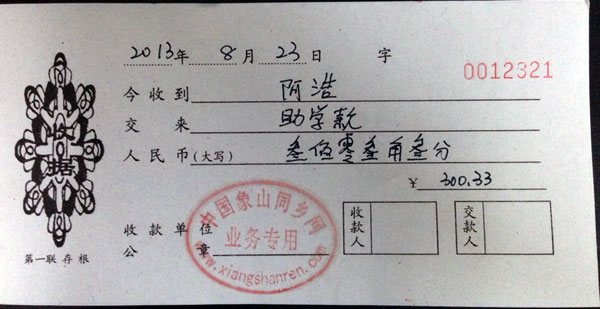 2013年 8月 23日 字
0012321
今收到 阿浩
交来 助学款
人民币(大写) 叁佰零叁角叁分
¥ 300.33
收据
收款单位公章
中国象山同乡网
业务专用
www.xiangshanren.com
收款人
交款人
第一联存根